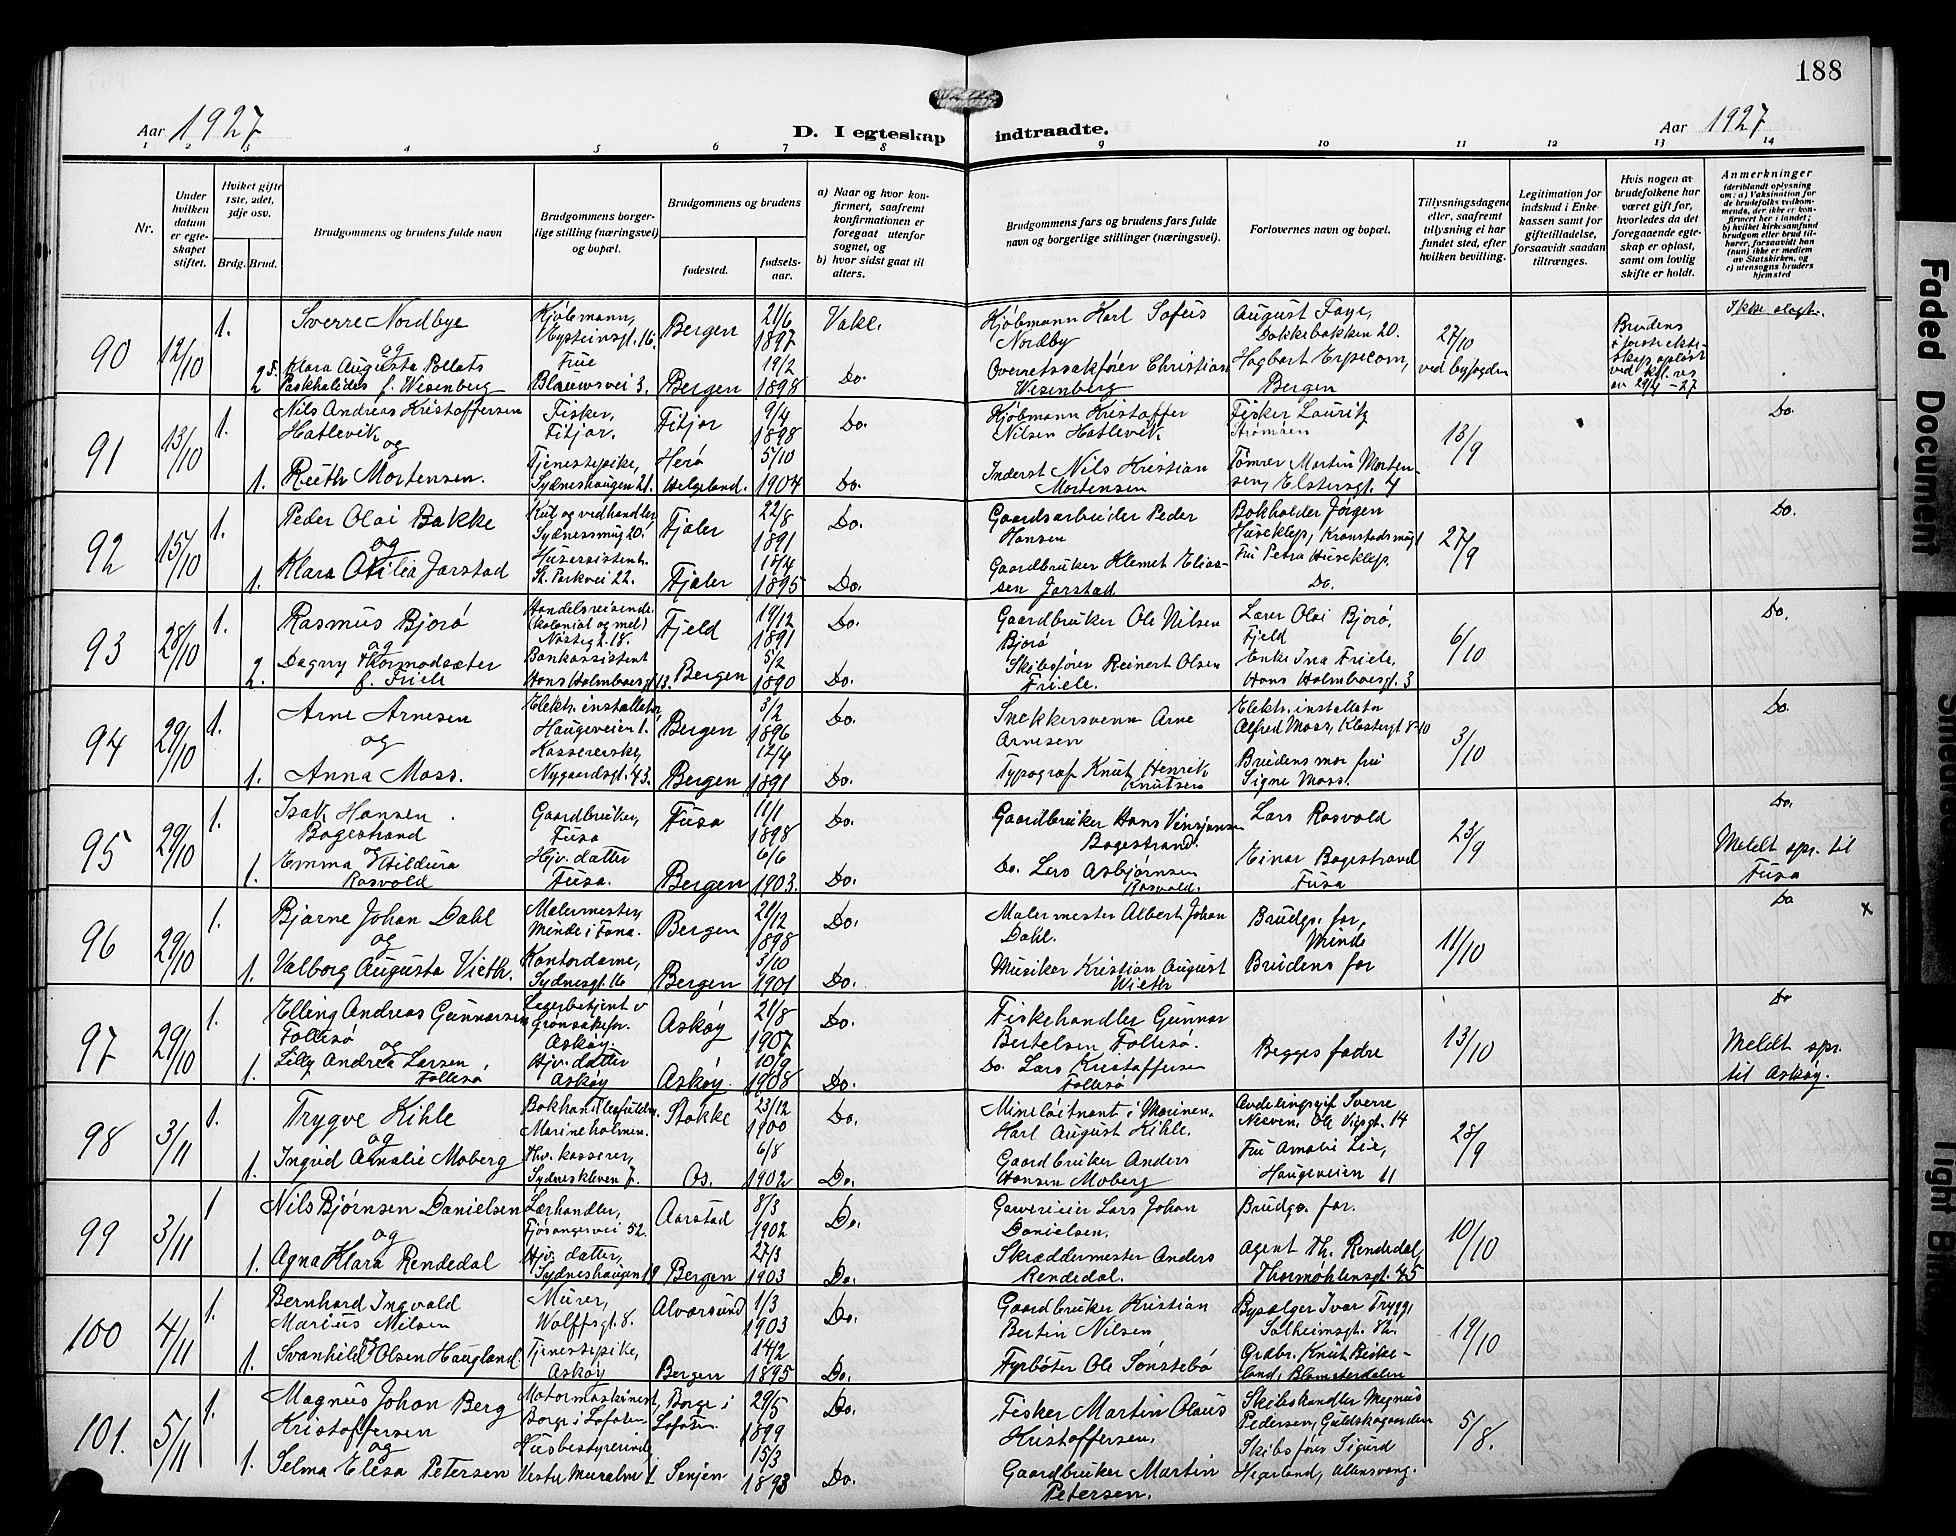 188
Aar 1927
D. I egteskap indtraadte.
Aar 1927
1 2 3 4 5 6 7 8 9 10 11 12 13 14
Nr.
Under hvilken datum er egteskapet stiftet.
Hvilket gifte 1ste, 2det, 3dje osv.
Brdg. Brud.
Brudgommens og brudens fulde navn
Brudgommens borgerlige stilling (næringsvei) og bopæl.
Brudgommens og brudens
fødested.
fødselsaar.
a) Naar og hvor konfirmert, saafremt konfirmationen er foregaat utenfor sognet, og
b) hvor sidst gaat til alters.
Brudgommens fars og brudens fars fulde navn og borgerlige stillinger (næringsvei).
Forlovernes navn og bopæl.
Tillysningsdagene eller, saafremt tillysning ei har fundet sted, efter hvilken bevilling.
Legitimation for indskud i Enkekassen samt for giftetilladelse, forsaavidt saadan tiltrænges.
Hvis nogen av brudefolkene har været gift før, hvorledes da det foregaaende egteskap er opløst, samt om lovlig skifte er holdt.
Anmerkninger
(deriblandt oplysning om: a) Vaksination for de brudefolks vedkommende, der ikke er konfirmert her i landet; b) hvilket kirkesamfund brudgom eller brud tilhører, forsaavidt han (hun) ikke er medlem av Statskirken, og c) utensogns bruders hjemsted
90 12/10 1. Sverre Nordbye Kjøbmann, Eysteinsgt. 16. Bergen 21/6 1897 Vakc. Kjøbmann Karl Sofus Nordby August Faye, Dokkebakken 20. 27/10 ved byfogden
Brudens forste ekteskap opløst ved kgl. res av 29/4-27
Ikke olagt.
og
2 Klara Augusta Pollats Paskhalides f. Wesenberg Frue Blaauwsvei 3. Bergen 19/2 1898 Do. Overretssakfører Christian Wesenberg Hagbart Erpecom, Bergen
91 13/10 1. Nils Andreas Kristoffersen Hatlevik Fisker, Fitjar. Fitjar 9/4 1898 Do. Kjøbmann Kristoffer Nilsen Hatlevik Fisker Lauritz Strømøen 13/9 Do.
og
1. Ruth Mortensen. Tjenestepike, Sydneshaugen 21. Herø Helgeland. 5/10 1904 Do. Inderst Nils Kristian Mortensen Tømrer Martin Mortensen, Elstersgt. 4
92 15/10 1. Peder Olai Bakke Kul og vedhandler, Sydnessmug 20. Fjaler 22/8 1891 Do. Gaardsarbeider Peder Hansen Bokholder Jørgen Huseklep, Kronstadsmugt 27/9 Do.
og
1. Klara Otilia Jarstad Husassistent. St. Parkvei 22. Fjaler 18/4 1895 Do. Gaardbruker Klemet Eliassen Jarstad Fru Petra Huseklep Do.
93 28/10 1. Rasmus Bjorø Handelsreisende (kolonial og mel) Nøsteg. 218. Fjeld 19/12 1891 Do. Gaardbruker Ole Nilsen Bjorø Lærer Olai Bjorø, Fjeld 6/10 Do.
og
2. Dagny Thormodsæter f. Friele Bankassistent Hans Holmboesgt 13. Bergen 5/2 1890 Do. Skibsfører Reinert Olsen Friele. Enke Ina Friele, Hans Holmboesgt. 3
94 29/10 1. Arne Arnesen Elektr. installatør, Haugeveien 1. Bergen 3/2 1896 Do. Snekkersvenn Arne Arnesen Elektr. installatør Alfred Moss, Klostergt 8-10 3/10 Do.
og
1. Anna Moss. Kassererske, Nygaardsgt. 43. Bergen 12/4 1891 Do. Typograf Knut Henrik Knutsen Brudens mor fru Signe Moss.
95 29/10 1. Isak Hansen Bogestrand Gaardbruker, Fusa Fusa 11/1 1898 Do. Gaardbruker Hans Vinsjansen Bogestrand. Lars Rosvold 23/9 Do.
og
1. Emma Hildura Rosvold Hjv. datter Fusa. Bergen 6/6 1903. Do. Do. Lars Asbjørnsen Rosvold. Einar Bogestrand Fusa
Meldt spr. til Fusa
96 29/10 1. Bjarne Johan Dahl Malermester, Minde i Fana. Bergen 21/12 1898 Do. Malermester Albert Johan Dahl. Brudgs. far, Minde 11/10 Do x
og
1. Valborg Augusta Vieth. Kontordame, Sydnesgt. 16 Bergen 3/10 1901 Do. Musiker Kristian August Wieth Brudens far
97 29/10 1. Elling Andreas Gunnarsen Follesø Lagerbetjent v Grønsakefor. Askøy. Askøy 21/8 1907 Do. Fiskehandler Gunnar Bertelsen Follesø. Begges fædre 13/10 Do
og
1. Lilly Andrea Larsen Follesø Hjv. datter Askøy Askøy. 10/9 1908 Do. Do. Lars Kristoffersen Follesø
Meldt spr. til Askøy.
98 3/11 1. Trygve Kihle Marineholmen. Stokke 23/12 1900 Do. Mineløitnant i Marinen. Karl August Kihle. Avdelingssjef Sverre Neeven, Ole Vigsgt. 14 28/9
og
1. Ingrid Amalie Moberg Hv. kasserer, Sydneskleven 7. Os. 6/8 1902 Do. Gaardbruker Anders Hansen Moberg Fru Amalie Lie, Haugeveien 11
99 3/11 1 Nils Bjørnsen Danielsen Lærhandler, Fjøsangervei 52. Aarstad 8/3 1902 Do. Garveieier Lars Johan Danielsen. Brudgs. far. 10/10
og
1. Agna Klara Rendedal Hjv. datter, Sydneshaugen 19 Bergen 27/3 1903 Do. Skræddermester Anders Rendedal. Agent Th. Rendedal, Thormøhlensgt. 45
100 4/11 1. Bernhard Ingvald Marius Nilsen Murer, Wolffsgt. 8. Alvorsund 1/3 1903 Do. Gaardbruker Kristian Bertin Nilsen, Bysælger Ivar Trygg, Solheimsgt. 19/10
og
1. Svanhild Olsen Haugland Tjenestepike, Askøy Bergen 14/2 1895 Do. Fyrbøter Ole Sønstebø Grdbr. Knut Birkeland, Blomsterdalen
101. 5/11 1. Magnus Johan Berg Kristoffersen Motormaskinest, Borge i Lofoten Borge i Lofoten 29/5 1899 Do. Fisker Martin Olaus Kristoffersen. Skibshandler Magnus Pedersen, Guldskogaarden 5/8.
og
1. Selma Elisa Petersen Husbestyrerinde, Vestre Muralm 1. Senjen 15/3 1893 Do. Gaardbruker Martin Petersen. Skibsfører Sigurd Hegerland, Ullensvang.
Faded Document
Tight Bin